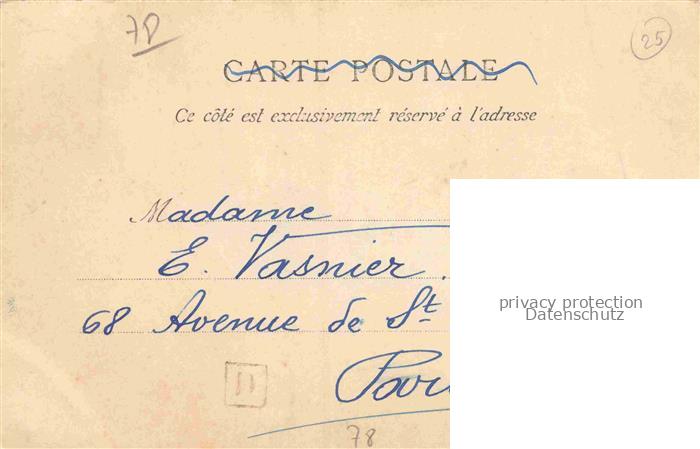 7D
25
CARTE POSTALE
Ce côté est exclusivement réservé à l'adresse
Madame
E. Vasnier.
68 Avenue de St
privacy protection
Datenschutz
D
78